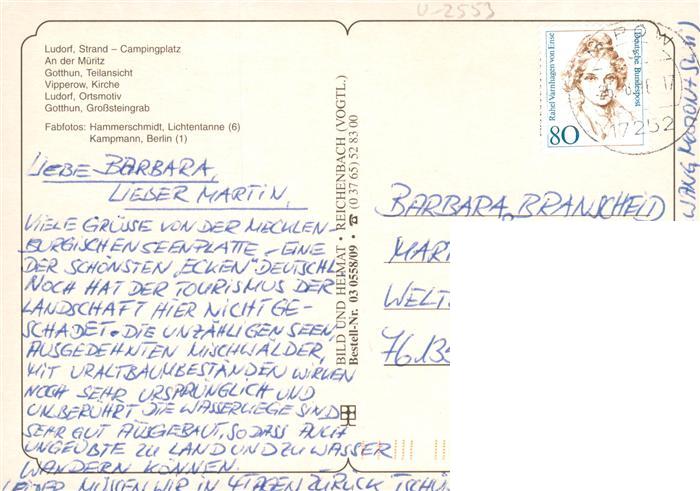 U-2553
Ludorf, Strand – Campingplatz
An der Müritz
Gotthun, Teilansicht
Vipperow, Kirche
Ludorf, Ortsmotiv
Gotthun, Großsteingrab
Fabfotos: Hammerschmidt, Lichtentanne (6)
Kampmann, Berlin (1)
LIEBE BARBARA,
LIEBER MARTIN,
VIELE GRÜSSE VON DER MECKLEN-
BURGISCHEN SEENPLATTE – EINE
DER SCHÖNSTEN „ECKEN“ DEUTSCHL.
NOCH HAT DER TOURISMUS DER
LANDSCHAFT HIER NICHT GE-
SCHADET. DIE UNZÄHLIGEN SEEN,
AUSGEDEHNTEN MISCHWÄLDER,
MIT URALTBAUMBESTÄNDEN WIRKEN
NOCH SEHR URSPRÜNGLICH UND
UNBERÜHRT DIE WASSERWEGE SIND
SEHR GUT AUSGEBAUT, SODASS AUCH
UNGEÜBTE ZU LAND UND ZU WASSER
WANDERN KÖNNEN.
LEIDER MÜSSEN WIR IN 4 TAGEN ZURÜCK TSCHÜ
BILD UND HEIMAT • REICHENBACH (VOGTL.)
Bestell-Nr. 03 0558/09 • ☎ (0 37 65) 52 83 00
Rahel Varnhagen von Ense
Deutsche Bundespost
80
17252
BARBARA BRANSCHEID
MART
WELT
76.135